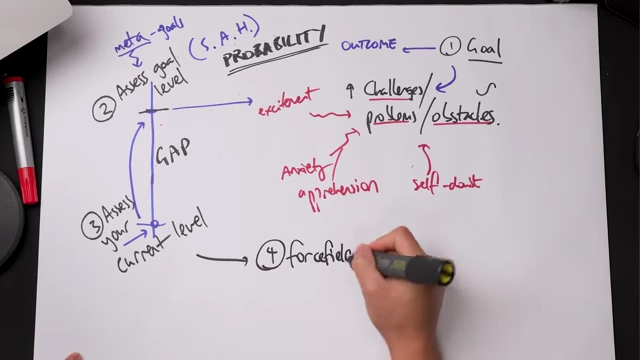 meta-goals
(S.A.H.)
PROBABILITY
OUTCOME
① Goal
② Assess goal
level
↑ Challenges/
problems/obstacles.
excitement
GAP
Anxiety
apprehension
self-doubt
③ Assess
your
current level
④ forcefield